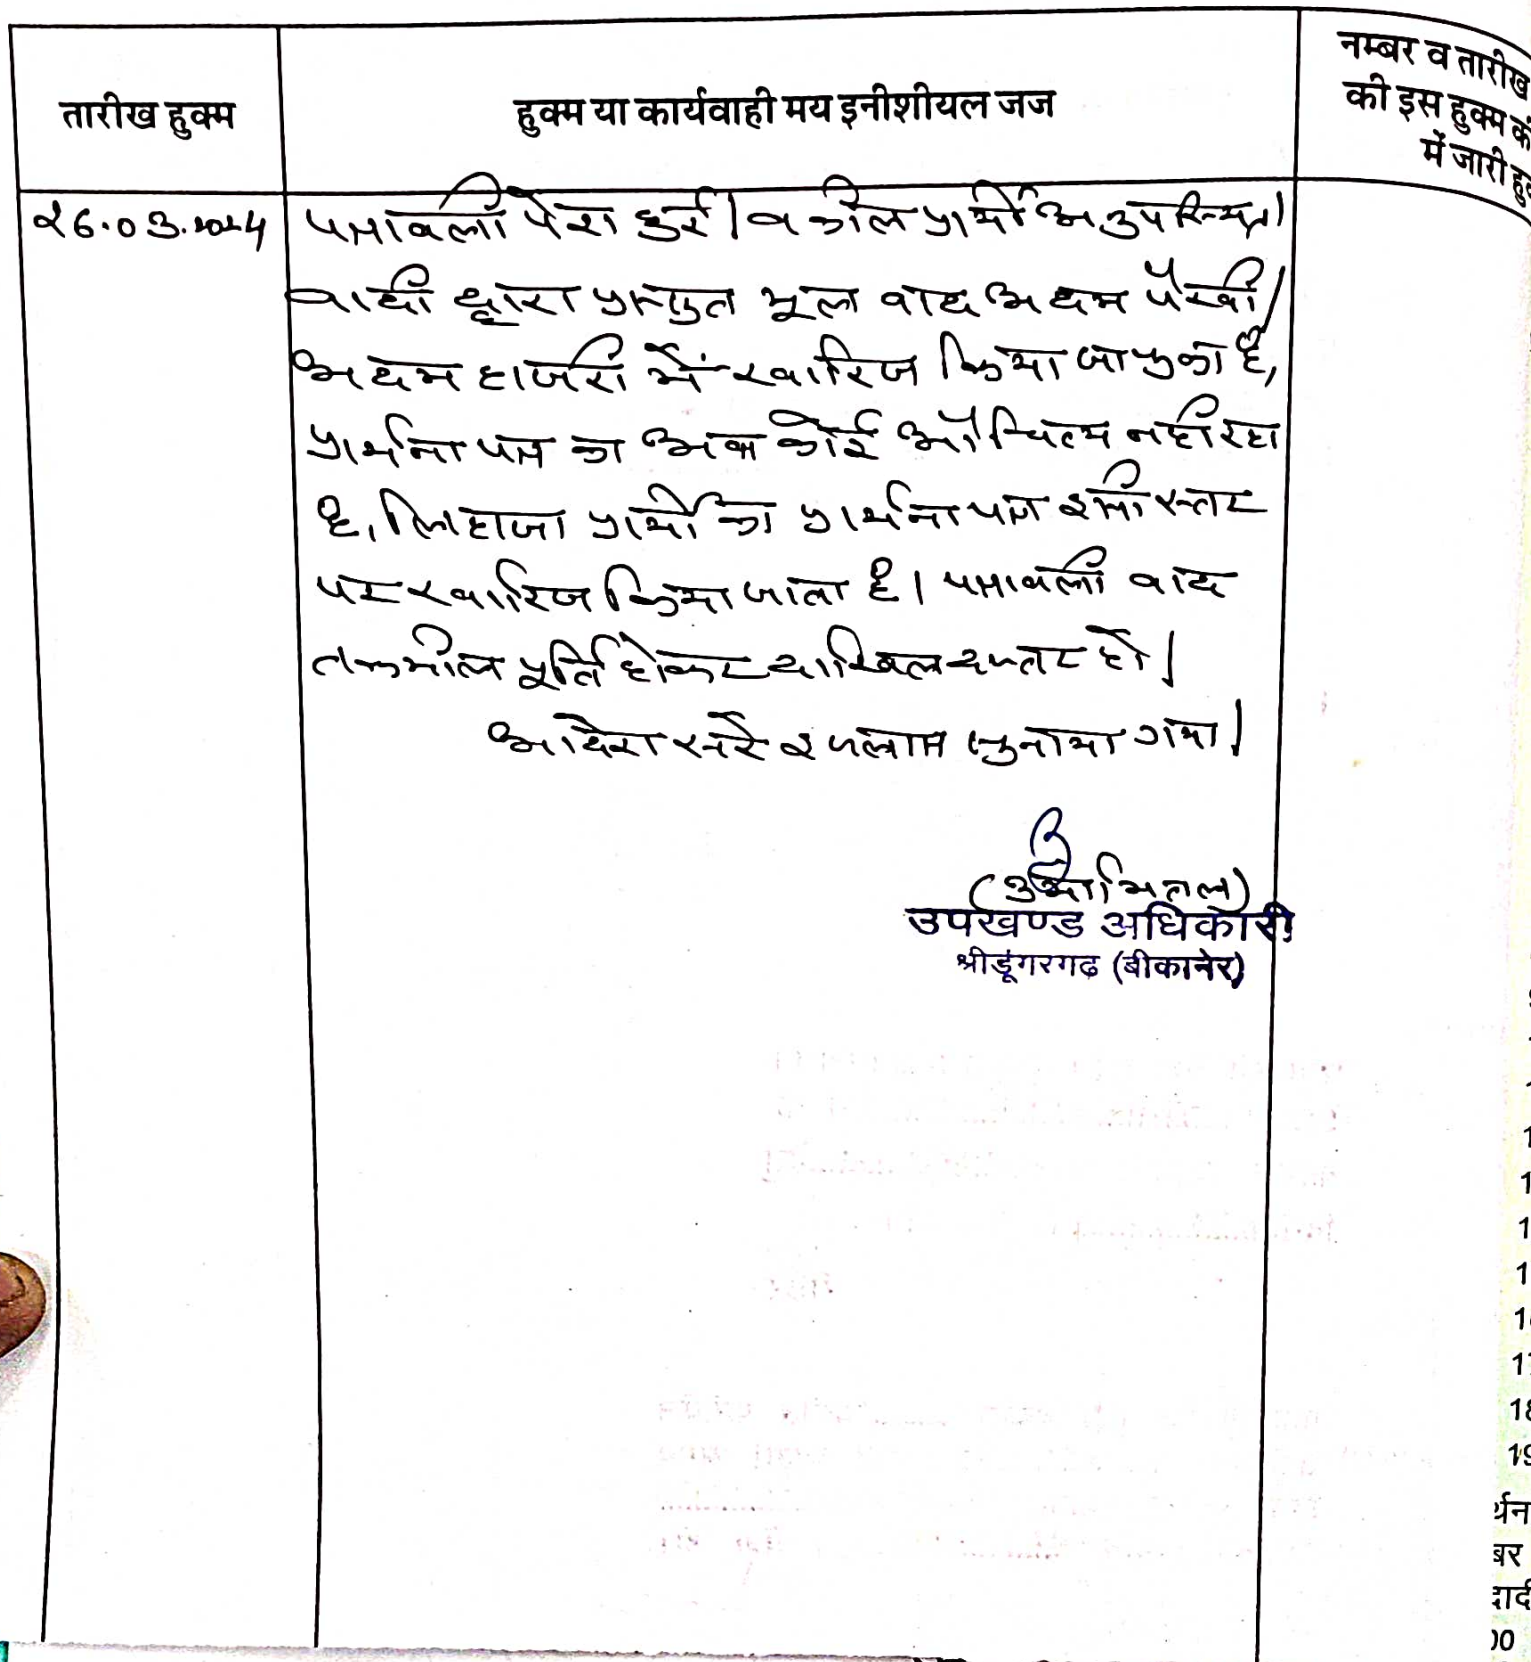 तारीख हुक्म
हुक्म या कार्यवाही मय इनीशीयल जज
नम्बर व तारीख
की इस हुक्म
में जारी
26.03.2024
पत्रावली पेश हुई। वकील प्रार्थी अनुपस्थित।
वादी द्वारा प्रस्तुत मूल वाद अदम पैरवी/
अदम हाजरी में खारिज किया जा चुका है,
प्रार्थना पत्र का अब कोई औचित्य नहीं रहा
है, लिहाजा प्रार्थी का प्रार्थना पत्र इसी स्तर
पर खारिज किया जाता है। पत्रावली बाद
तकमील पूर्ति होकर दाखिल दफ्तर हो।
आदेश सरे इजलास सुनाया गया।
(उमा मित्तल)
उपखण्ड अधिकारी
श्रीडूंगरगढ (बीकानेर)